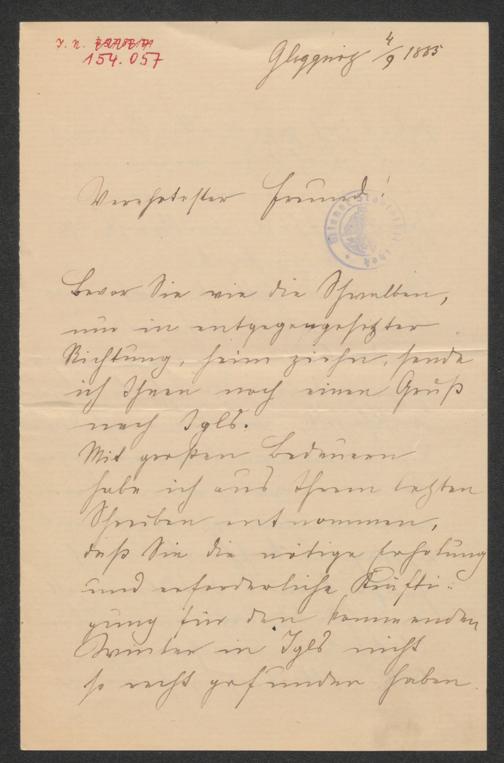 J. N.
154.057
Gloggnitz 4/9 1885
Verehrtester Freund!
Bevor Sie wie die Schwalben,
nur in entgegengesetzter
Richtung, heim ziehn, sende
ich Ihnen noch einen Gruß
nach Igls.
Mit großen Bedauern
habe ich aus Ihrem letzten
Schreiben entnommen,
daß Sie die nötige Erholung
und erforderliche Kräfti-
gung für den kommenden
Winter in Igls nicht
so recht gefunden haben.